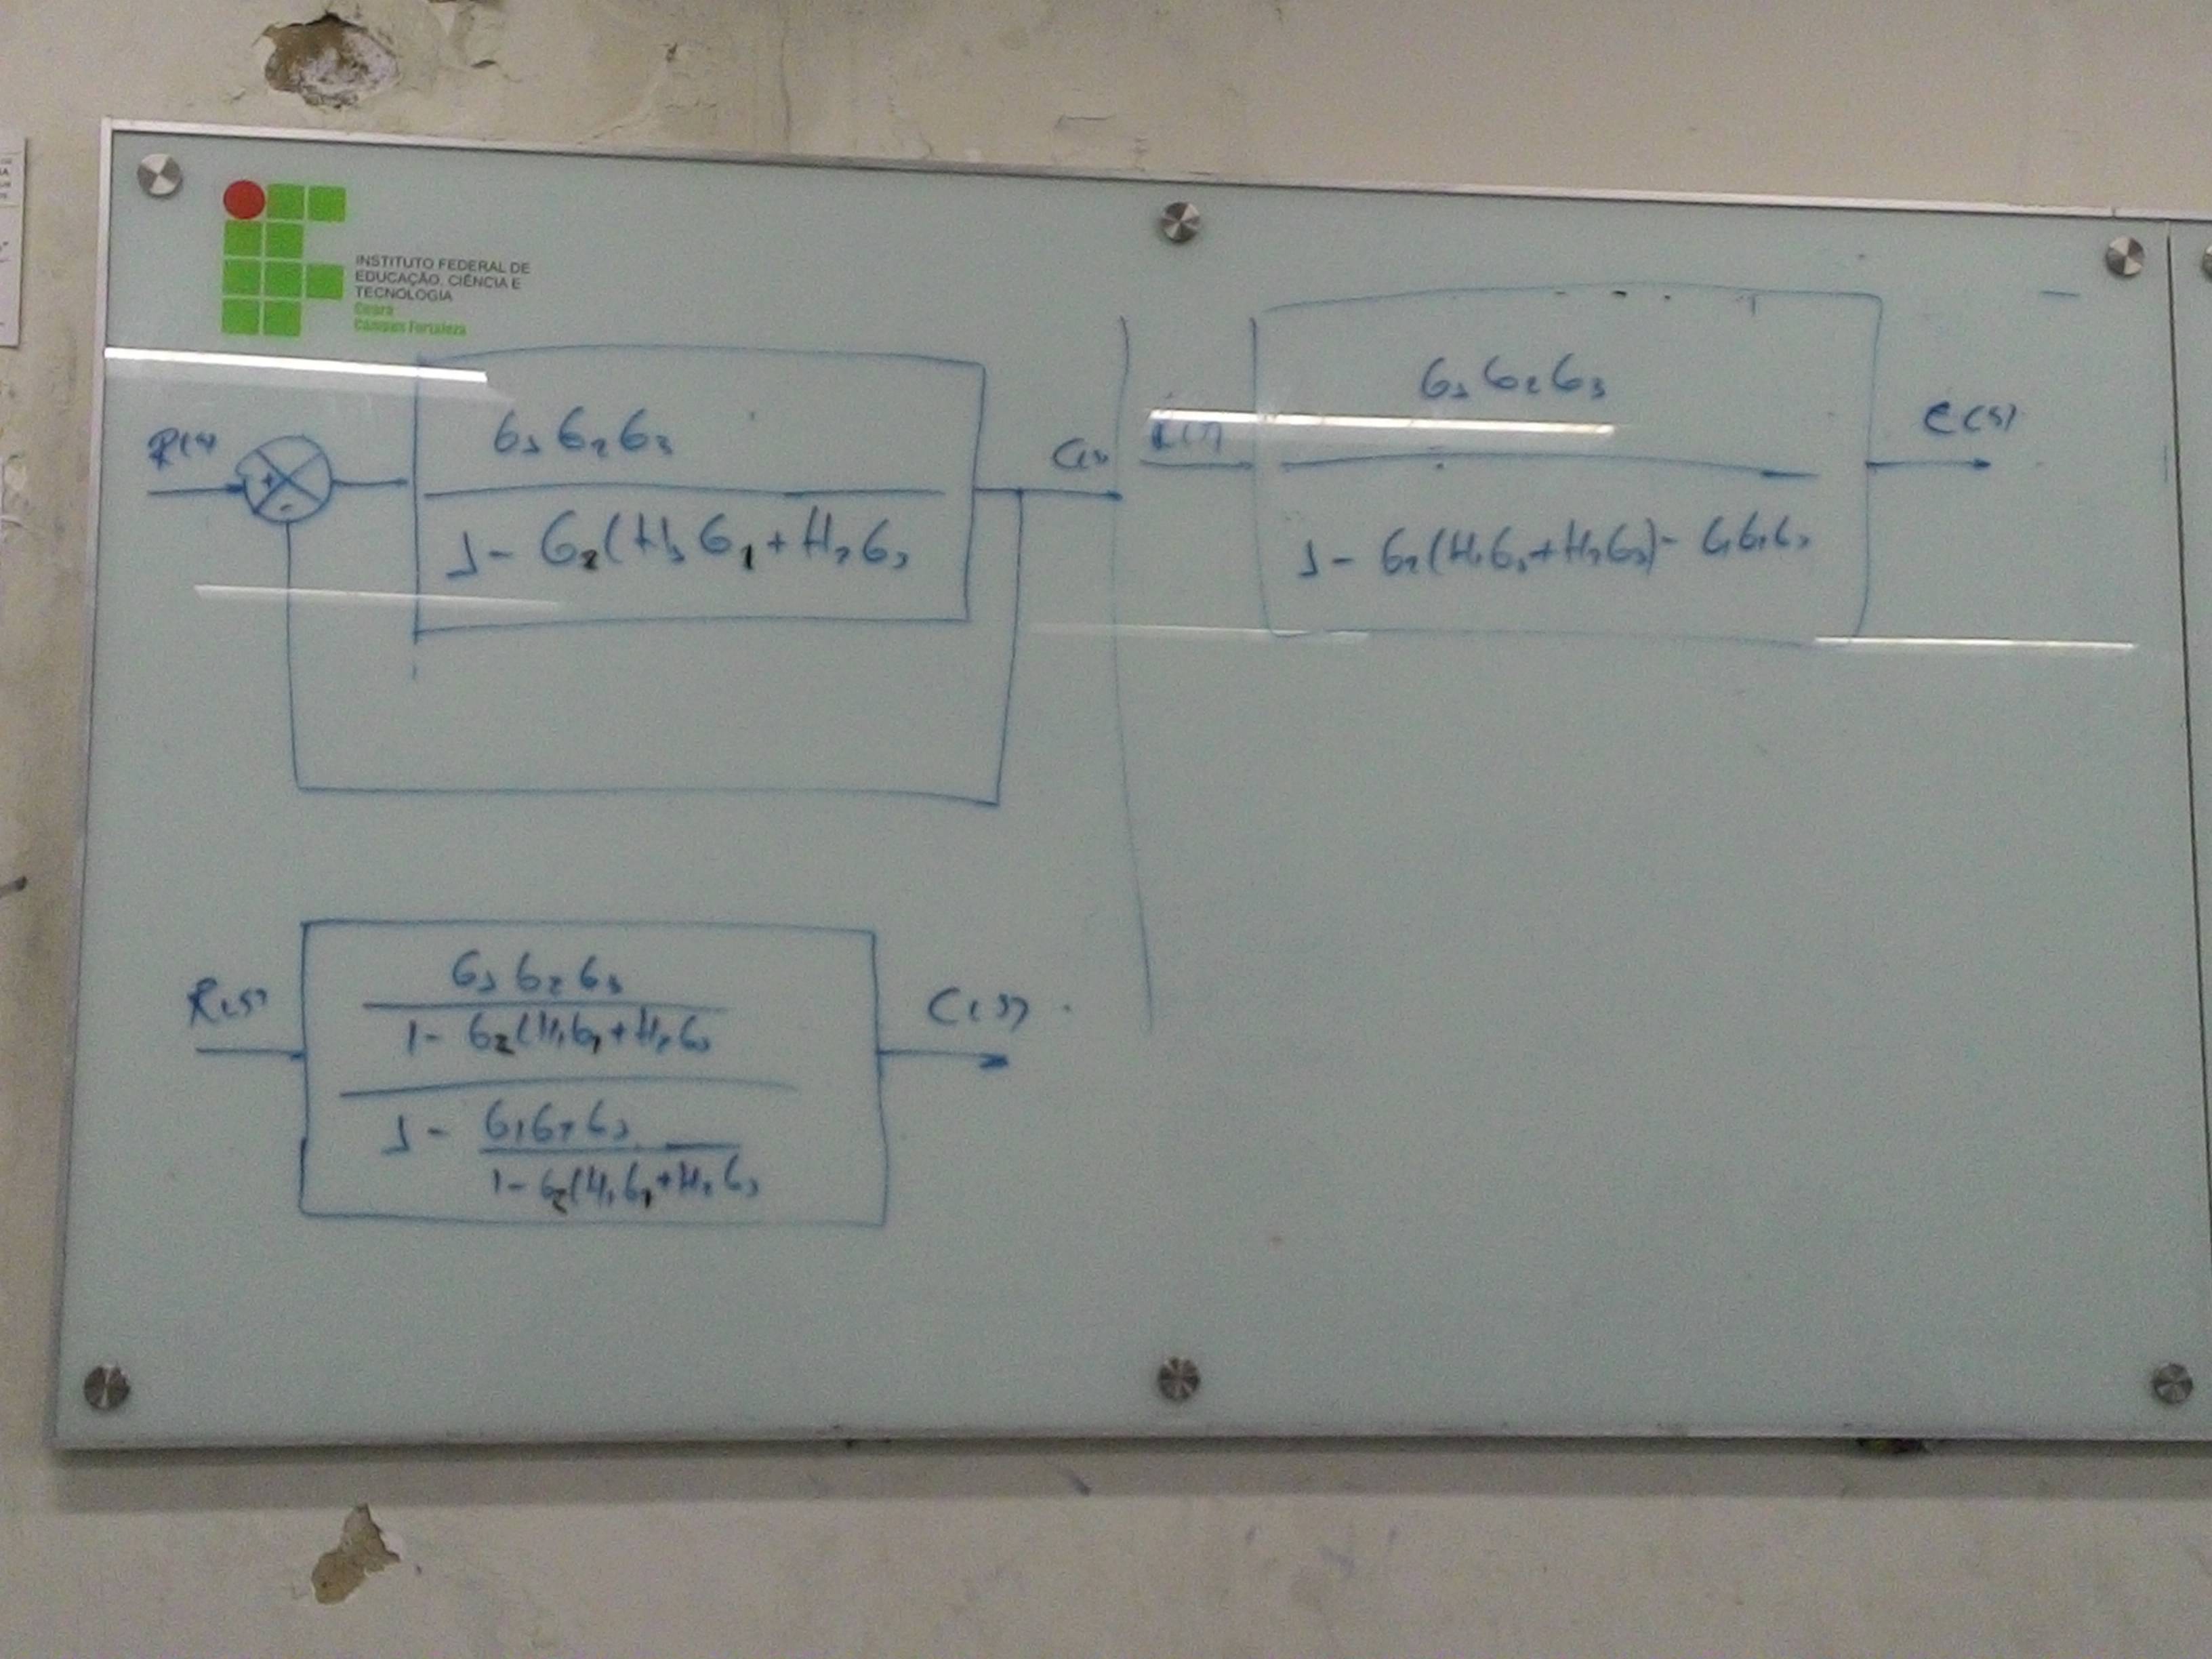 INSTITUTO FEDERAL DE
EDUCAÇÃO, CIÊNCIA E
TECNOLOGIA
Ceará
Câmpus Fortaleza
R(s)
+
-
G1 G2 G3
1 - G2(H1 G1 + H2 G3
C(s)
R(s)
G1 G2 G3
1 - G2(H1G1+H2G3) - G1G2G3
C(s)
R(s)
G1 G2 G3
1 - G2(H1G1+H2G3
1 - G1G2G3
1 - G2(H1G1+H2G3
C(s)